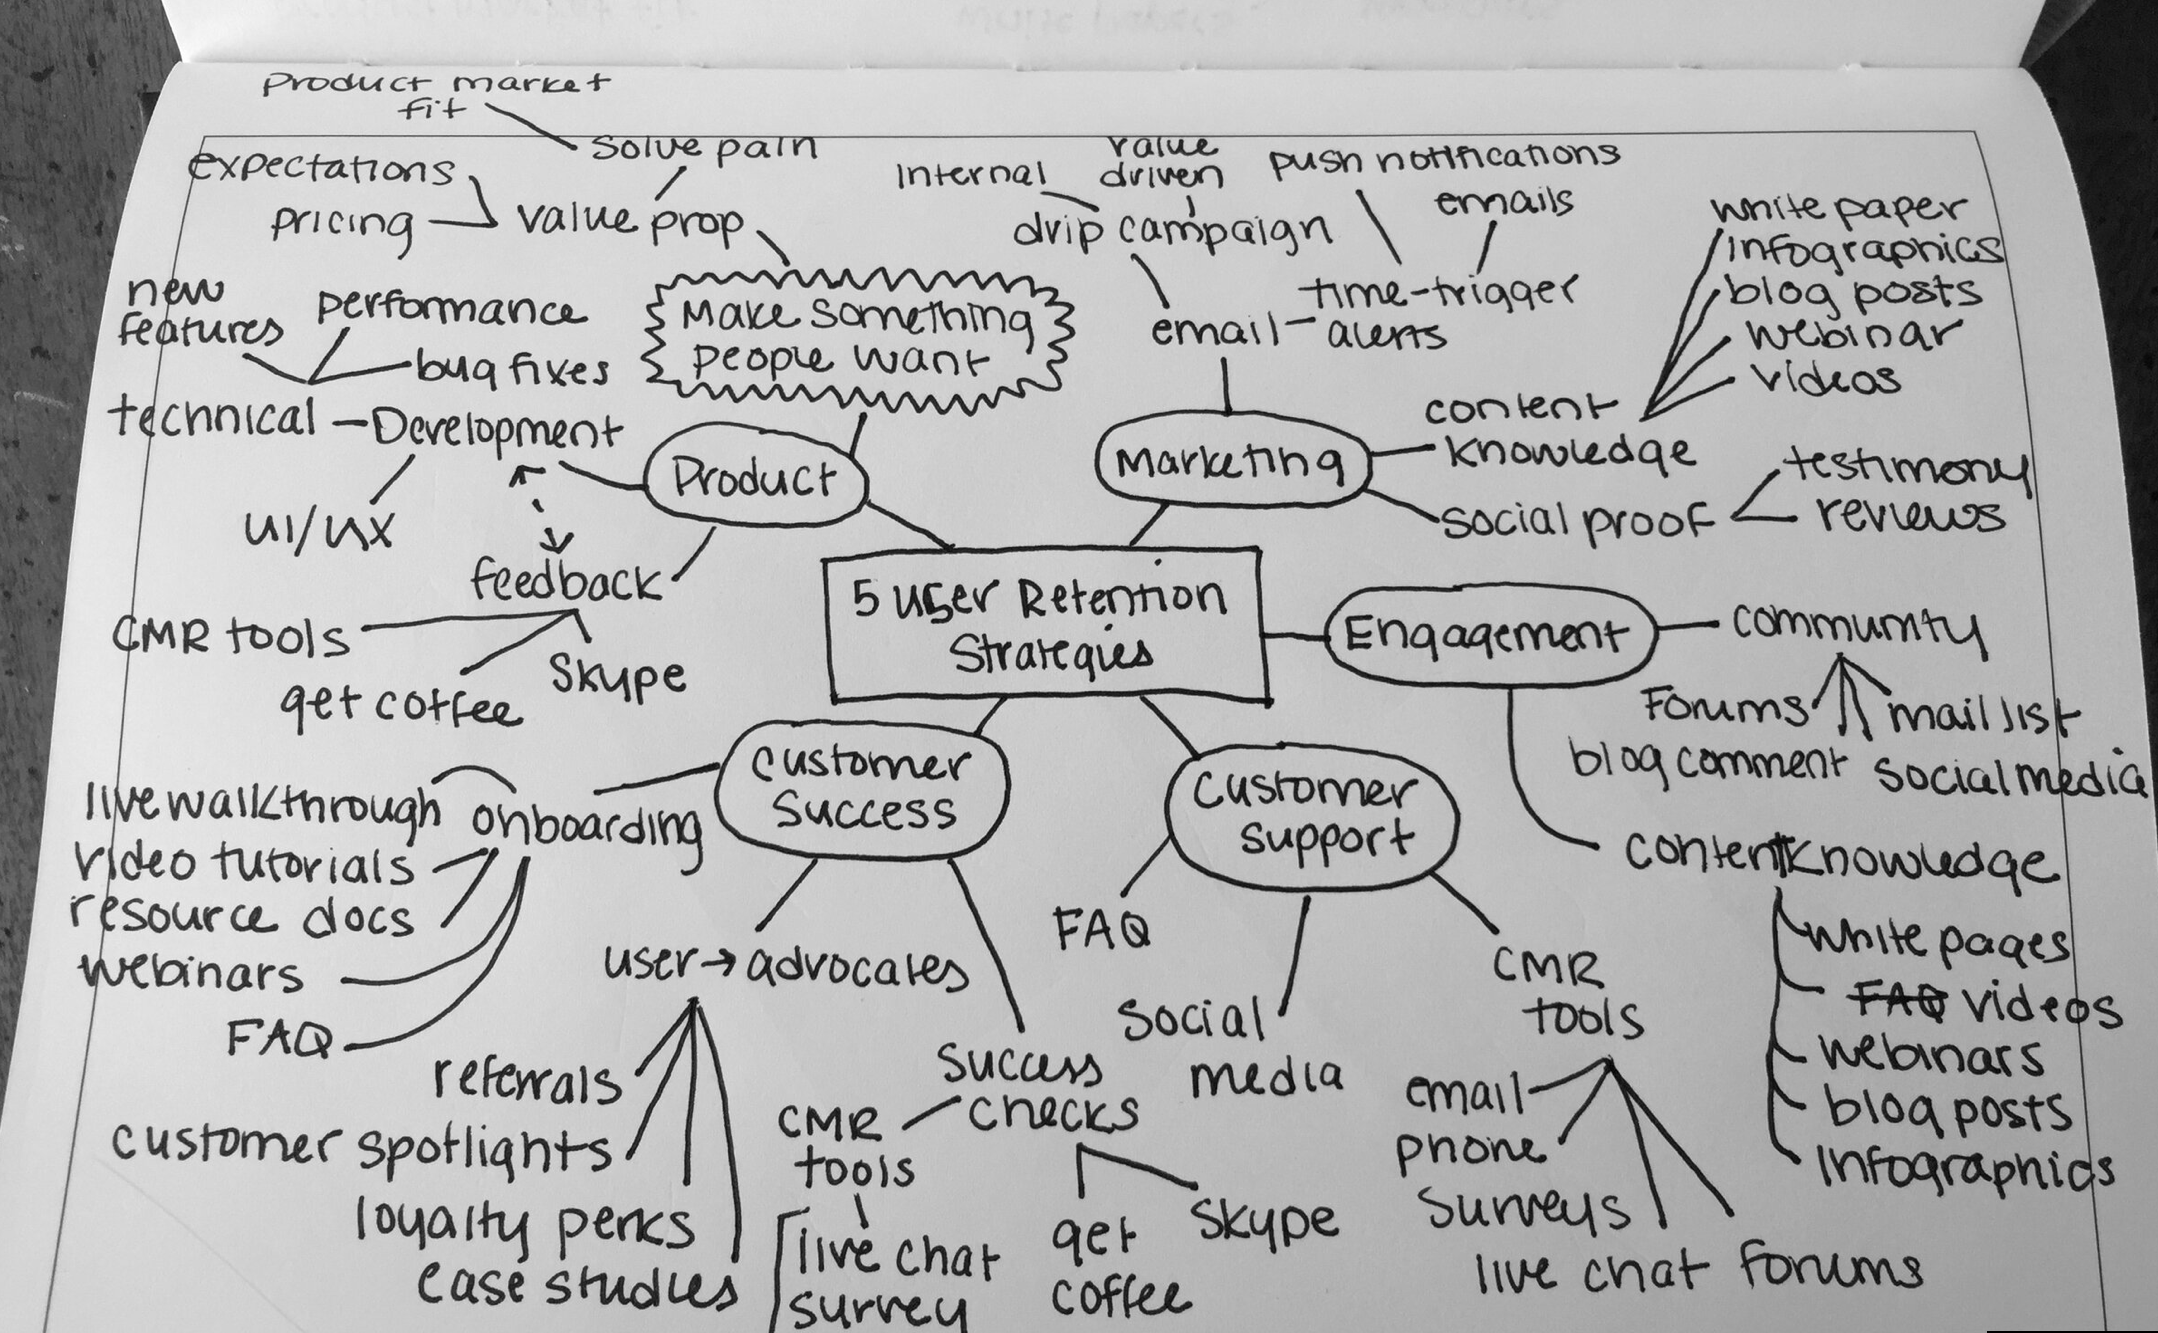 Product market
fit
solve pain
expectations
pricing
value prop
Make something
people want
new
features
performance
bug fixes
technical
Development
UI/UX
Product
feedback
CMR tools
get coffee
Skype
Internal
value
driven
drip campaign
push notifications
emails
time-trigger
email
alerts
Marketing
white paper
infographics
blog posts
webinar
videos
content
knowledge
social proof
testimony
reviews
5 User Retention
Strategies
Engagement
community
Forums
mail list
blog comment
social media
content knowledge
white pages
FAQ videos
webinars
blog posts
Infographics
customer
success
onboarding
live walkthrough
video tutorials
resource docs
webinars
FAQ
user → advocates
referrals
customer spotlights
loyalty perks
case studies
success
checks
CMR
tools
live chat
survey
get
coffee
Skype
customer
support
FAQ
social
media
CMR
tools
email
phone
surveys
live chat
forums